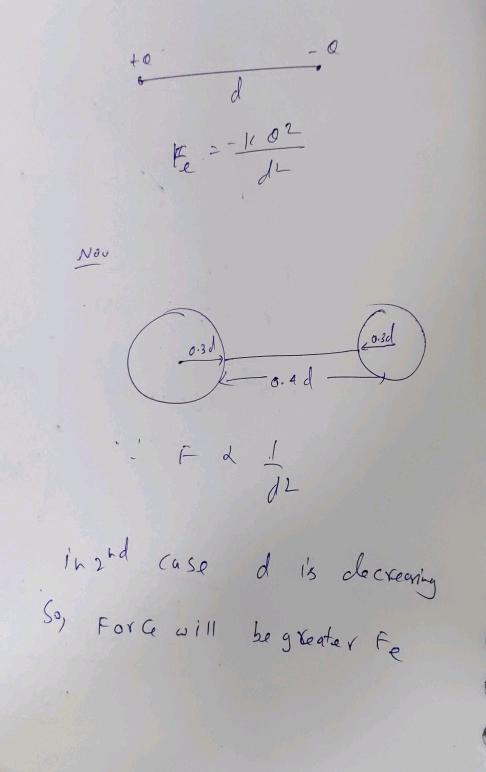 +Q - Q
d
Fe = - K Q2 / d2
Now
0.3d 0.3d
0.4d
∵ F α 1 / d2
in 2nd case d is decreasing
So, Force will be greater Fe